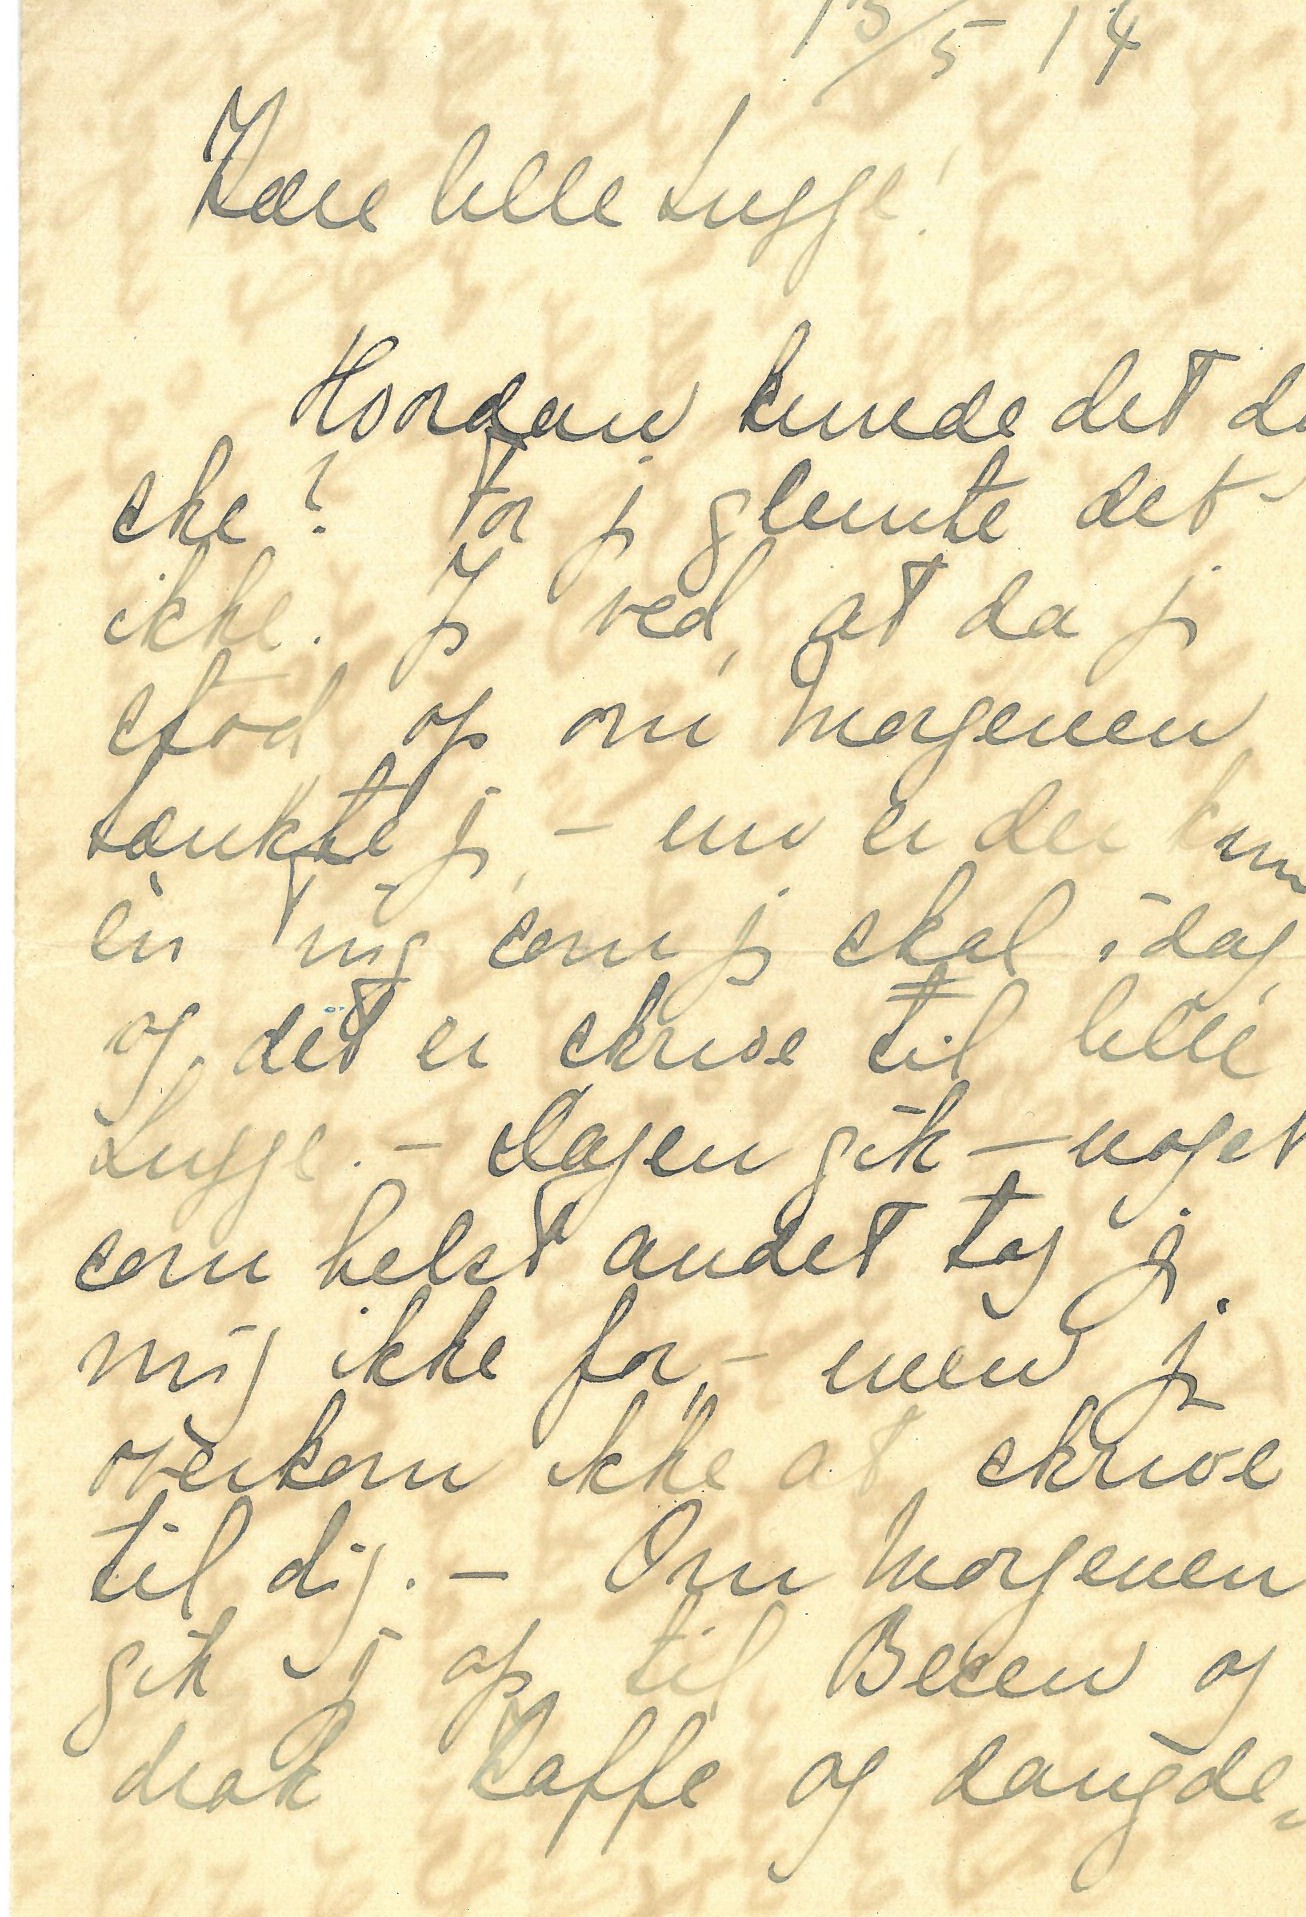 13/5 14
Kære lille Lugge!
Hvordan kunde det da
ske? For j glemte det
ikke. J ved, at da j
stod op om Morgenen
tænkte j, – nu er der kun
èn Ting som j skal idag,
og det er skrive til lille
Lugge. – Dagen gik – noget
som helst andet tog j
mig ikke for, – men j
overkom ikke at skrive
til dig. – Om Morgenen
gik j op til Besen og
drak Kaffe og daugde,